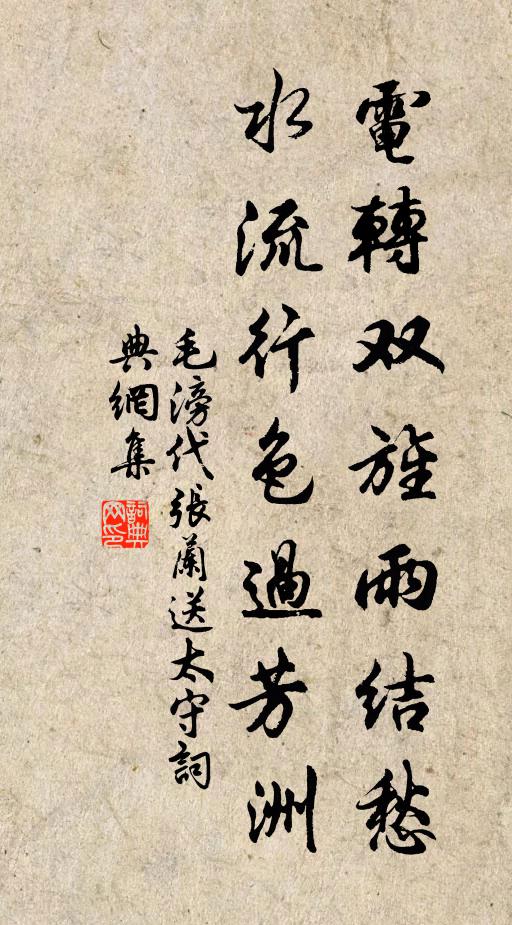 電轉双旌雨結愁
水流行色過芳洲
毛滂代張蘭送太守詞
典網集
詞典网印